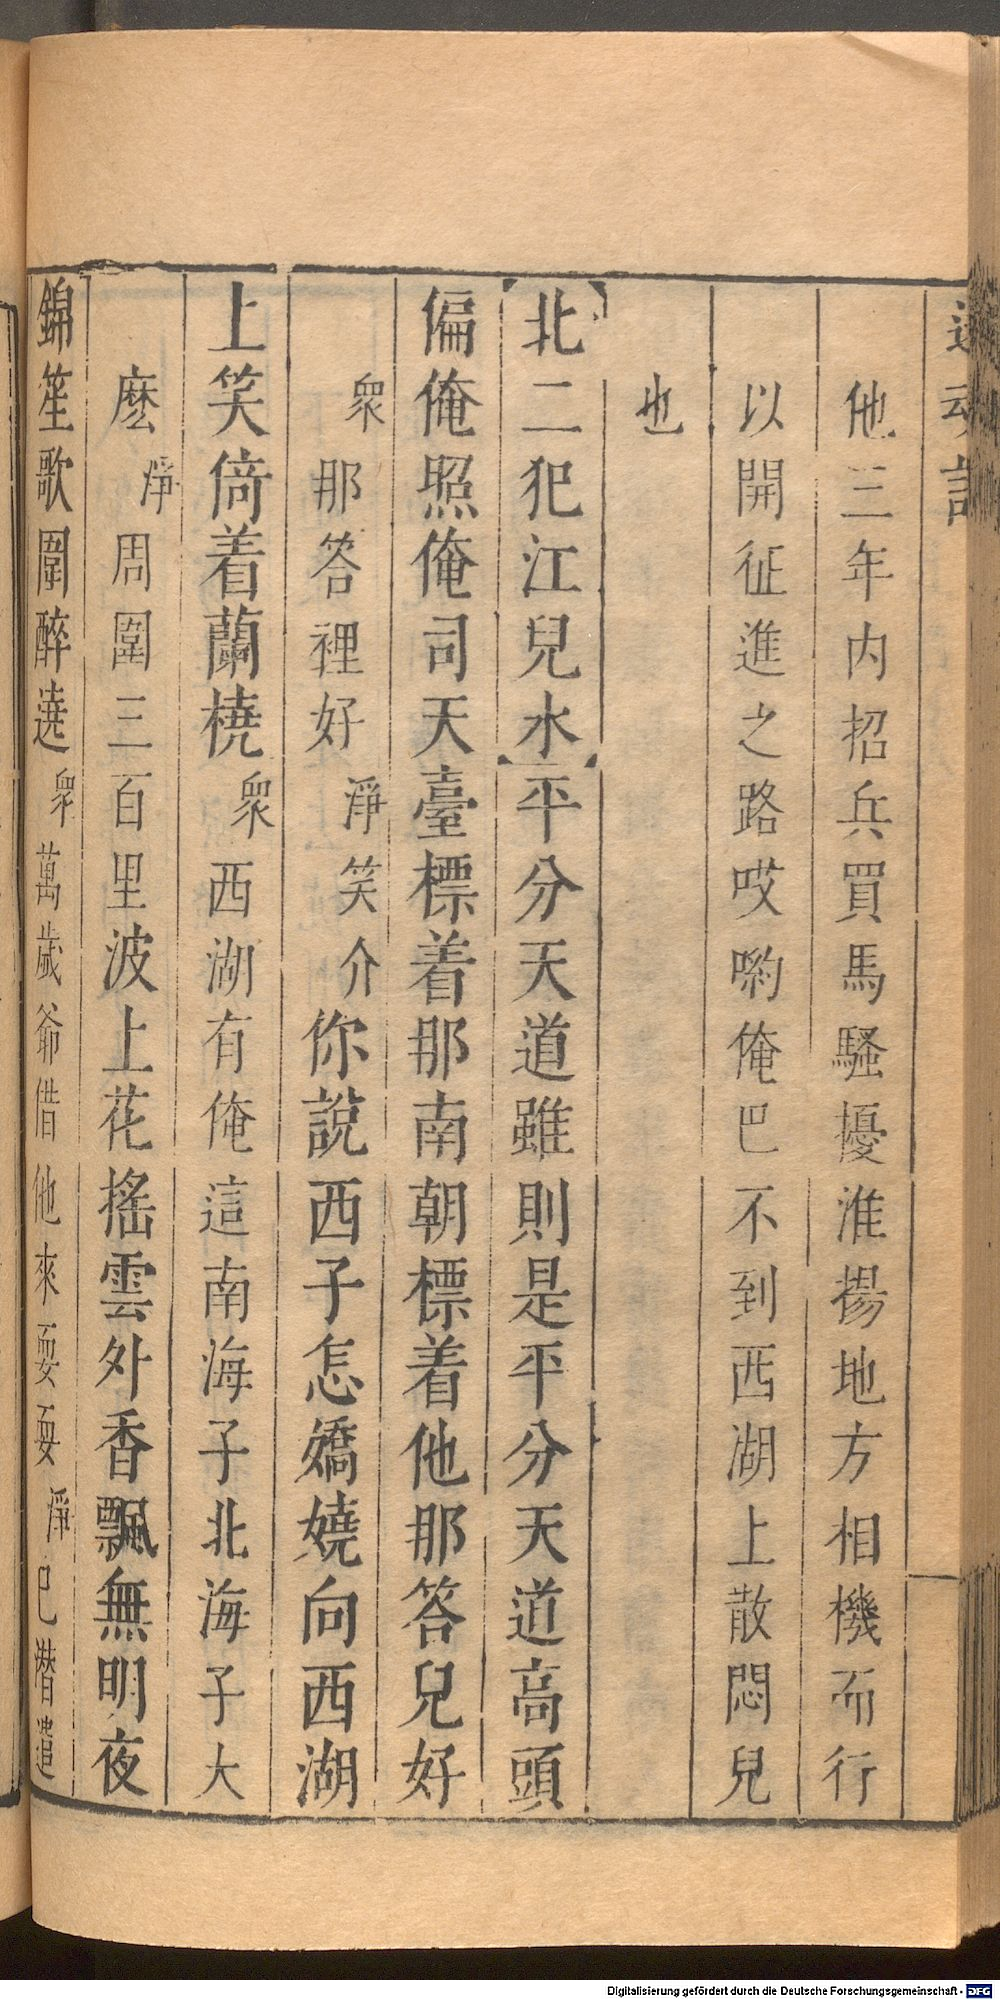 還魂記
他三年内招兵買馬騷擾淮揚地方相機而行
以開征進之路哎喲俺巴不到西湖上散悶兒
也
【北二犯江兒水】平分天道雖則是平分天道高頭
偏俺照俺司天臺標着那南朝標着他那答兒好
衆那答裡好淨笑介你說西子怎嬌嬈向西湖
上笑倚着蘭橈衆西湖有俺這南海子北海子大
麽淨周圍三百里波上花搖雲外香飄無明夜
錦笙歌圍醉遶衆萬歲爺借他來耍耍淨已潛遣
Digitalisierung gefördert durch die Deutsche Forschungsgemeinschaft - DFG